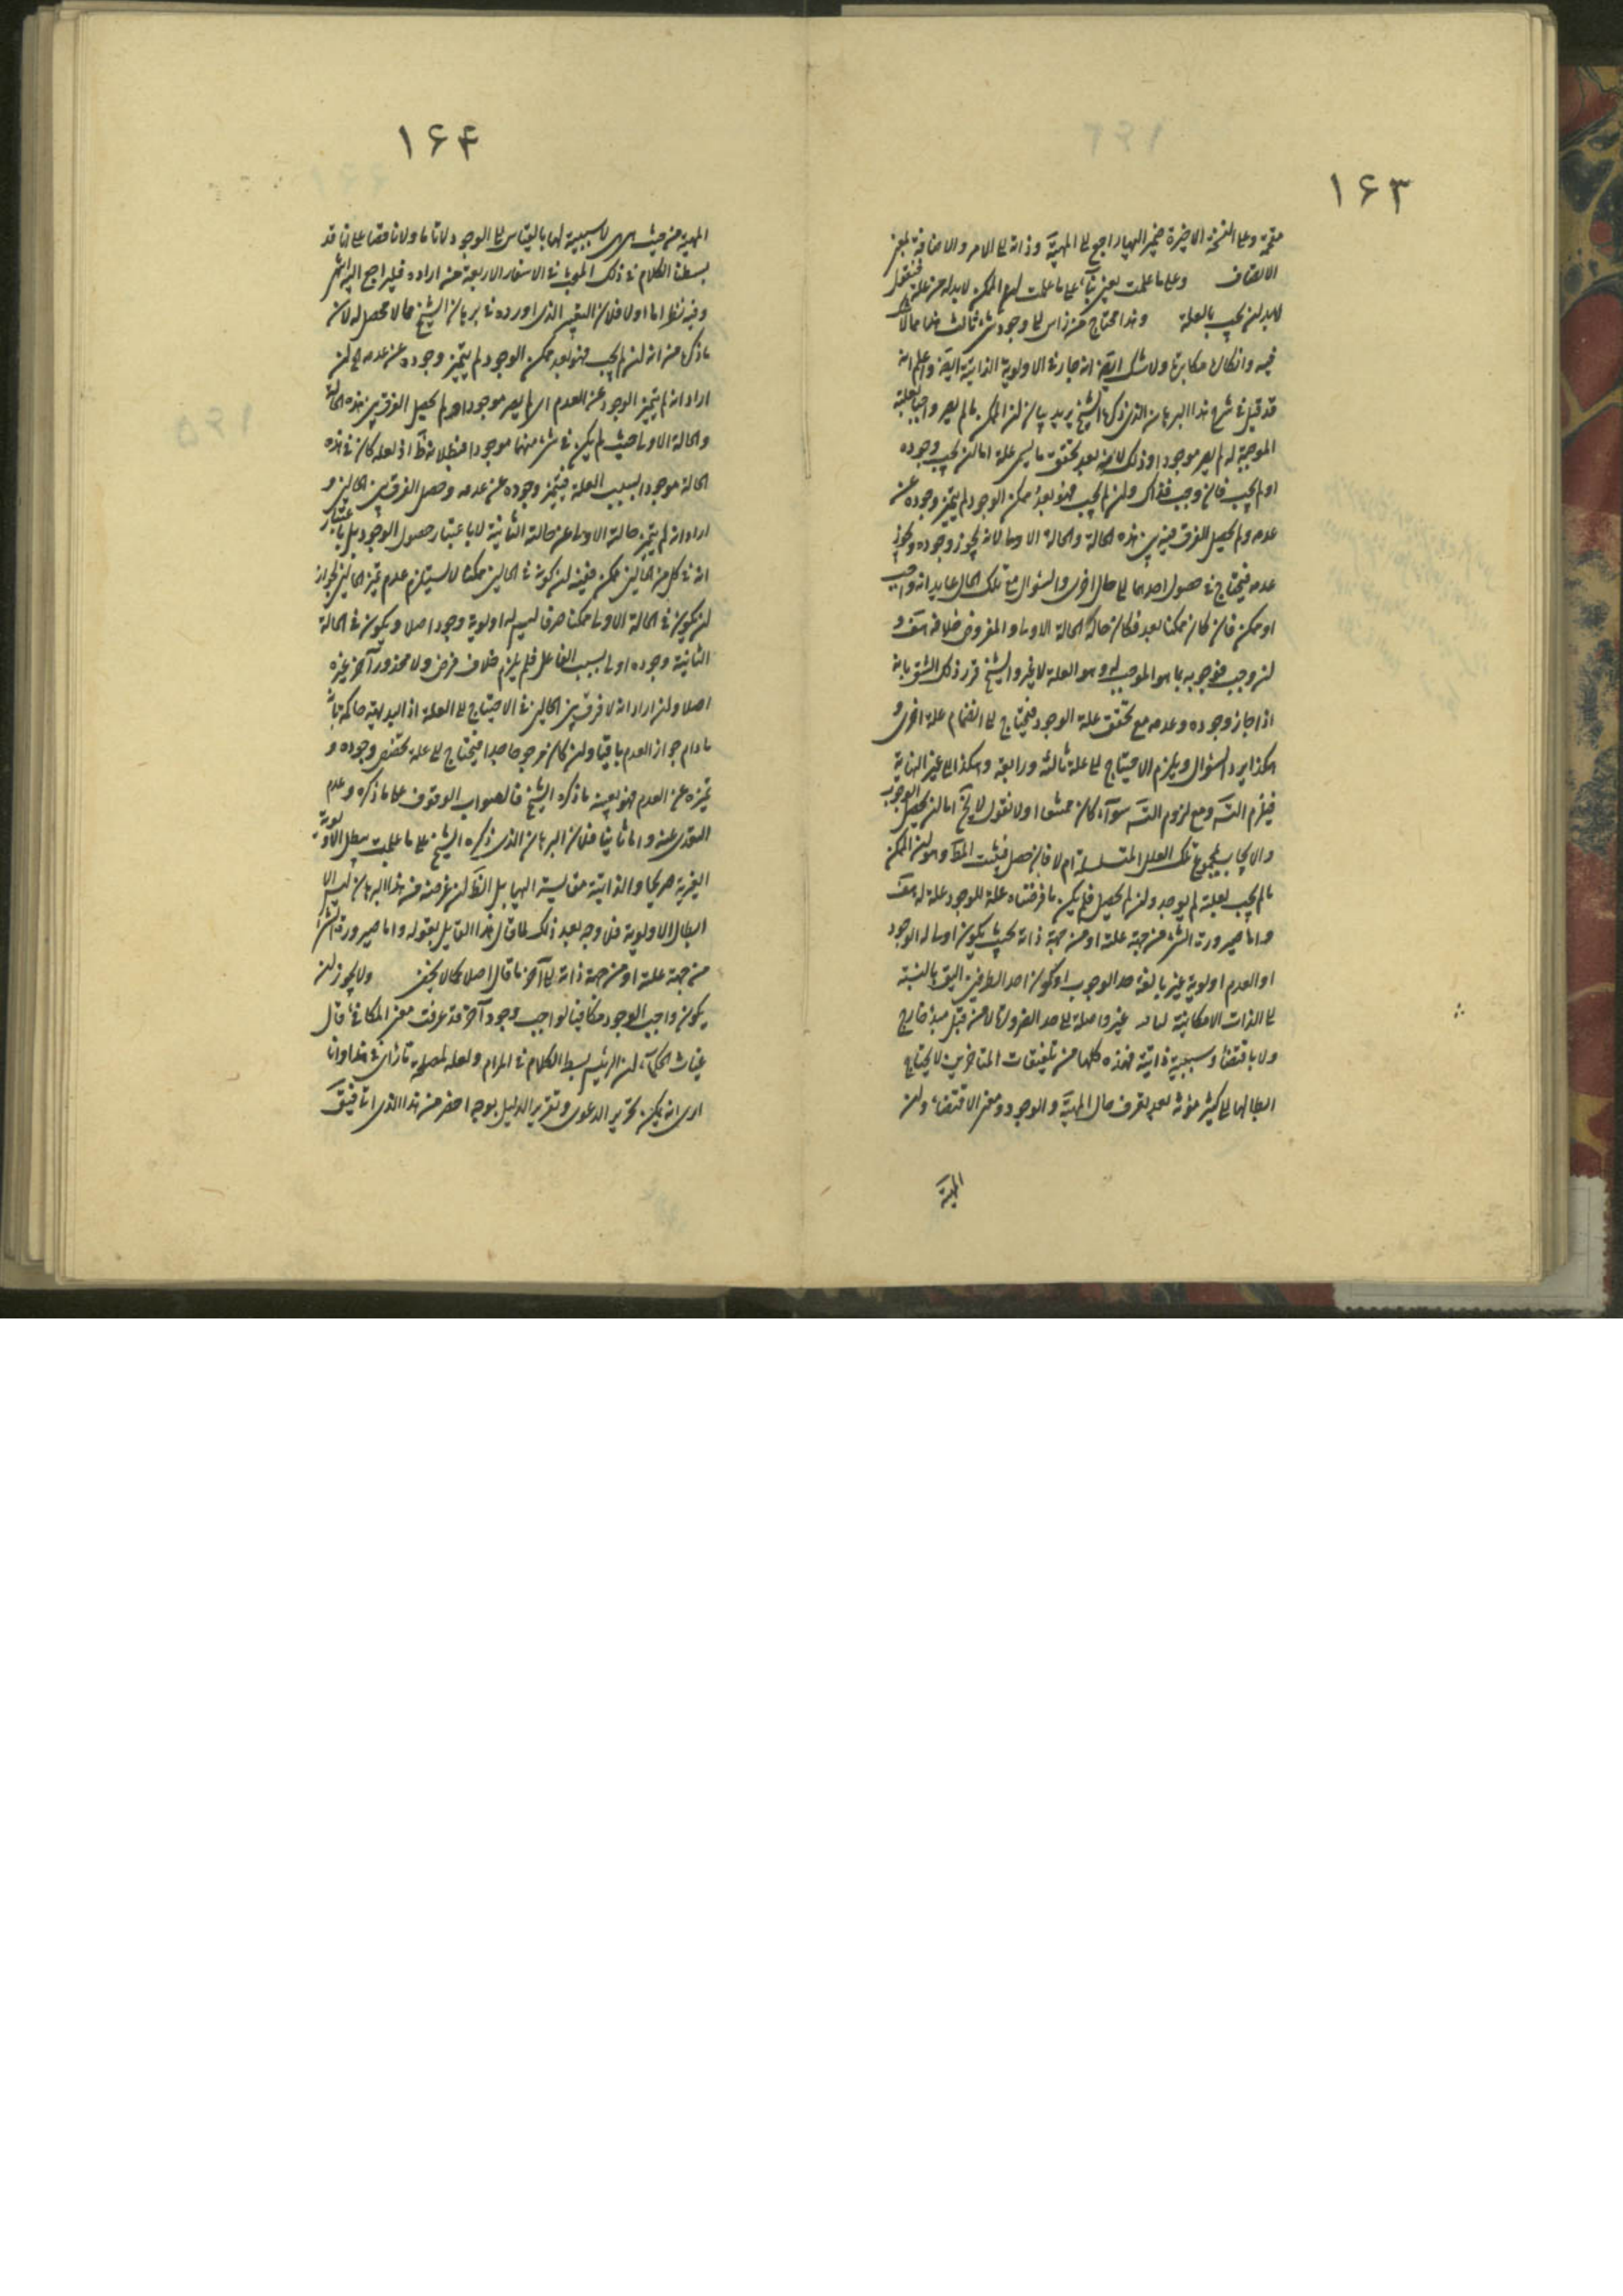 ۱۶۳
متحمة وعلى النسخة الاخيرة ضمير اليها راجع الى المهية وذاته الى الامر والاضافة بمعنى
الاتصاف وعلى ما علمت يعنى بناء على ما علمت ان الممكن لابد له من علة فنقول
لابد ان يجب بالعلة وهذا محتاج من ذاس الى وجود شىء ثالث هذا مما لا شك
فيه وانكاره مكابرة ولا شك ايضا انه جار فى الاولوية الذاتية ايضا واعلم انه
قد قيل فى شرح هذا البرهان الذى ذكره الشيخ يريد بيان ان الممكن ما لم يصر واجبا بعلته
الموجبة له لم يصر موجودا وذلك لانه بعد تحقق ما ليس علة اما ان يجب وجوده
او لم يجب فان وجب فذاك وان لم يجب فهو بعد ممكن الوجود لم يتميز وجوده عن
عدمه ولم يحصل الفرق فيه بين هذه الحالة والحالة الاولى لانه يجوز وجوده ويجوز
عدمه فيحتاج فى حصول احدهما الى حال اخرى والسؤال مع تلك الحال عايد انه واجب
او ممكن فان كان ممكنا بعد فكان حاله كالحالة الاولى والمفروض خلافه هف و
ان وجب فوجوبه بما هو الموجب له وهو العلة لا غير والشيخ قرر ذلك الشق بانه
اذا جاز وجوده وعدمه مع تحقق علة الوجود فيحتاج الى انضمام علة اخرى و
هكذا يرد السؤال ويلزم الاحتياج الى علة ثالثة ورابعة وهكذا الى غير النهاية
فيلزم التس ومع لزوم التس سواء كان ممتنعا او لا نقول لا يخ اما ان يحصل الوجوب
والايجاب بمجموع تلك العلل المتسلسلة ام لا فان حصل فثبت المط وهو ان الممكن
ما لم يجب بعلته لم يوجد وان لم يحصل فلم يكن ما فرضناه علة للوجود علة له هف
واما صيرورة الشىء من جهة علته او من جهة ذاته بحيث يكون اولى له الوجود
او العدم اولوية غير بالغة حد الوجوب او كون احد الطرفين اليق بالنسبة
الى الذات الامكانية لياقة غير واصلة الى حد الضرورة لا من قبل مبدء خارج
ولا باقتضاء وسببية ذاتية فهذه كلها من تلفيقات المتأخرين لا يحتاج
ابطالها الى كثير مؤنة بعد تعرف حال المهية والوجود ومعنى الاقتضاء وان
المهية
۱۶۴
المهية من حيث هى هى لا سببية لها بالقياس الى الوجود لا تاما ولا ناقصا على انا قد
بسطنا الكلام فى ذلك المبحث فى الاسفار الاربعة من اراده فليراجع اليه انتهى
وفيه نظر اما اولا فلان اليقين الذى اورده فى برهان الشيخ مما لا محصل له لان
ما ذكره من انه ان لم يجب فهو بعد ممكن الوجود لم يتميز وجوده عن عدمه اه ان
اراد انه لم يتميز الوجود عن العدم اى لم يصر موجودا ولم يحصل الفرق بين هذه الحالة
والحالة الاولى حيث لم يكن فى شىء منهما موجودا فبطلانه ظ اذ لعله كان فى هذه
الحالة موجودا بسبب العلة فيتميز وجوده عن عدمه وحصل الفرق بين الحالين و
اراد انه لم يتميز حالته الاولى عن حالته الثانية لا باعتبار حصول الوجود بل باعتبار
انه فى كل من الحالين ممكن ففيه ان كونه فى الحالين ممكنا لا يستلزم عدم تميز الحالين لجواز
ان يكون فى الحالة الاولى ممكنا صرفا ليس له اولوية وجود اصلا ويكون فى الحالة
الثانية وجوده اولى بسبب الفاعل فلم يلزم خلاف فرض ولا محذور آخر غيره
اصلا وان اراد انه لا فرق بين الحالين فى الاحتياج الى العلة اذ البديهية حاكمة بانه
ما دام جواز العدم باقيا وان كان مرجوحا جدا فيحتاج الى علة تخصص وجوده و
تميزه عن العدم فهو بعينه ما ذكره الشيخ فالصواب الوقوف على ما ذكره وعدم
التعدى عنه واما ثانيا فلان البرهان الذى ذكره الشيخ على ما علمت يبطل الاولوية
الغيرية صريحا والذاتية مقايسة اليها بل الظ ان غرضه من هذا البرهان ليس الا
ابطال الاولوية فلا وجه بعد ذلك لما قال هذا القايل بقوله واما صيرورة الشىء
من جهة علته او من جهة ذاته الى آخر ما قال اصلا كما لا يخفى ولا يجوز ان
يكون واجب الوجود مكافيا لواجب وجود آخر قد عرفت معنى المكافئ قال
غياث الحكماء ان الرئيس بسط الكلام فى المرام ولعله لمصلحة تارة فى هذا وانا
ارى انه يمكن تحرير الدعوى وتقرير الدليل بوجه اخصر من هذا الذى